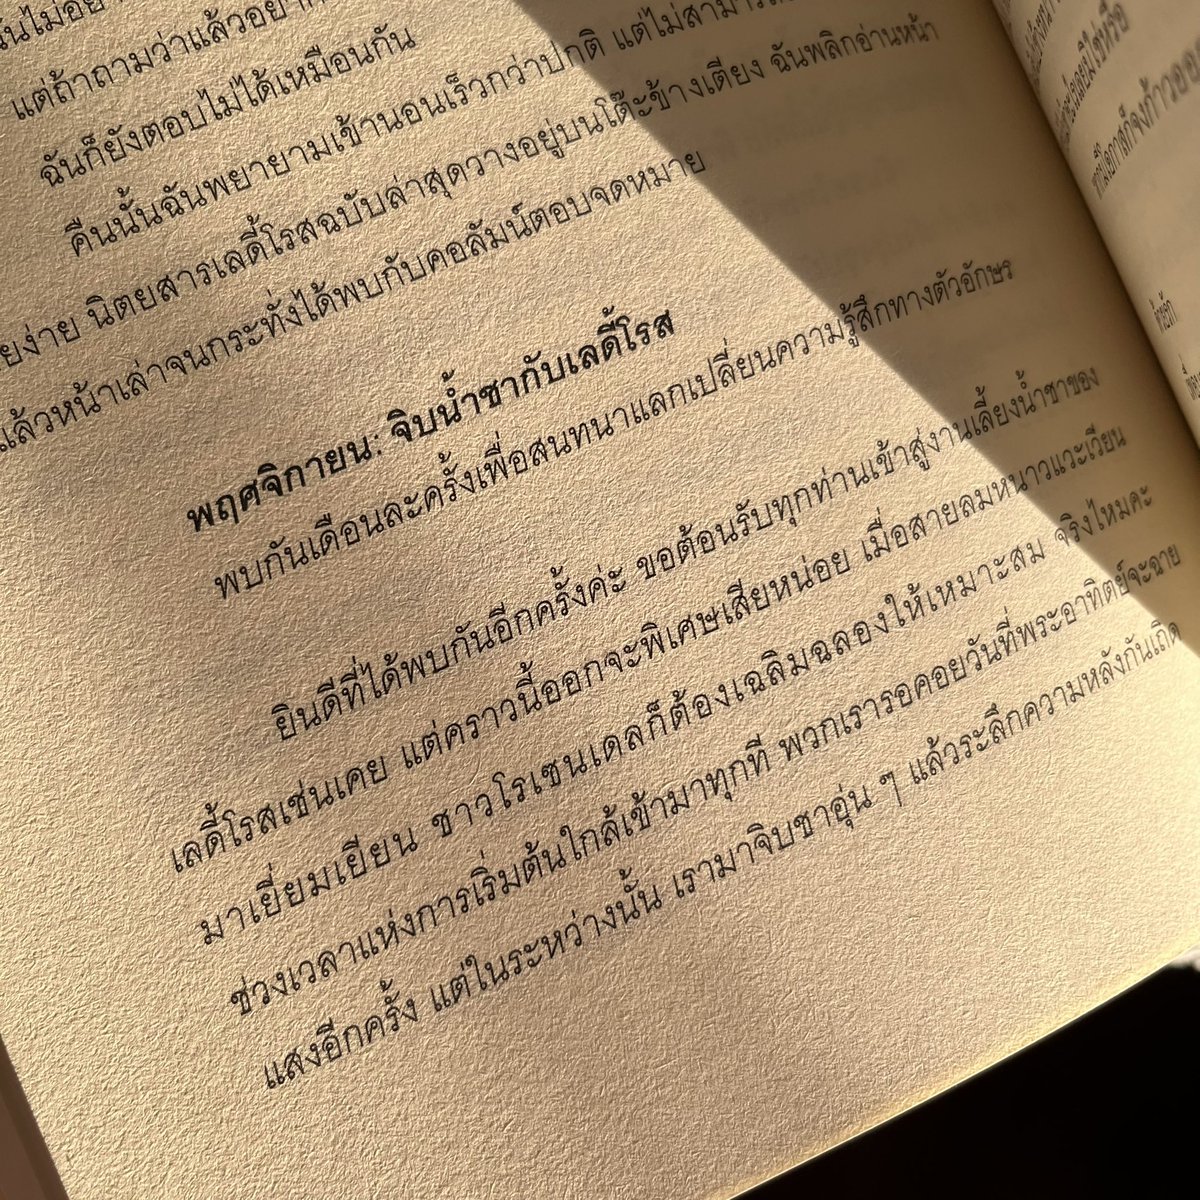 แต่ถ้าถามว่าแล้วอยาก
ฉันก็ยังตอบไม่ได้เหมือนกัน
คืนนั้นฉันพยายามเข้านอนเร็วกว่าปกติ แต่ไม่สามารถ
ง่าย นิตยสารเลดี้โรสฉบับล่าสุดวางอยู่บนโต๊ะข้างเตียง ฉันพลิกอ่านหน้า
แล้วหน้าเล่าจนกระทั่งได้พบกับคอลัมน์ตอบจดหมาย
พฤศจิกายน: จิบน้ำชากับเลดี้โรส
พบกันเดือนละครั้งเพื่อสนทนาแลกเปลี่ยนความรู้สึกทางตัวอักษร
ยินดีที่ได้พบกันอีกครั้งค่ะ ขอต้อนรับทุกท่านเข้าสู่งานเลี้ยงน้ำชาของ
เลดี้โรสเช่นเคย แต่คราวนี้ออกจะพิเศษเสียหน่อย เมื่อสายลมหนาวแวะเวียน
มาเยี่ยมเยียน ชาวโรเซนเดลก็ต้องเฉลิมฉลองให้เหมาะสม จริงไหมคะ
ช่วงเวลาแห่งการเริ่มต้นใกล้เข้ามาทุกที พวกเรารอคอยวันที่พระอาทิตย์จะฉาย
แสงอีกครั้ง แต่ในระหว่างนั้น เรามาจิบชาอุ่น ๆ แล้วระลึกความหลังกันเถิด